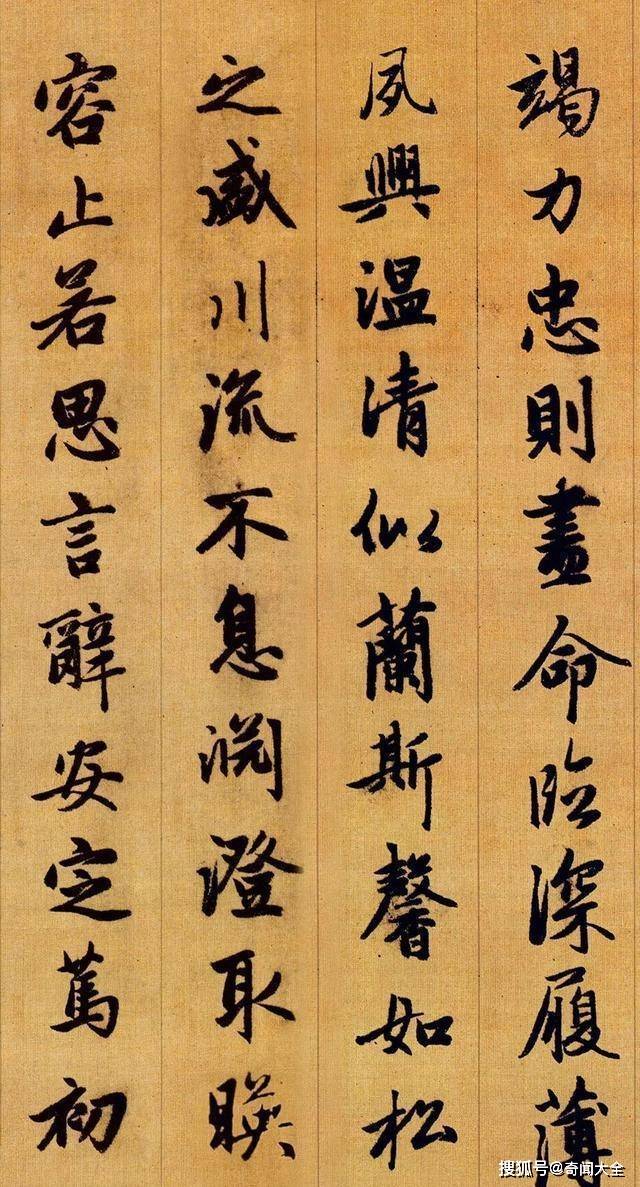 竭力忠則盡命臨深履薄
夙興温清似蘭斯馨如松
之盛川流不息淵澄取暎
容止若思言辭安定篤初
搜狐号@奇闻大全